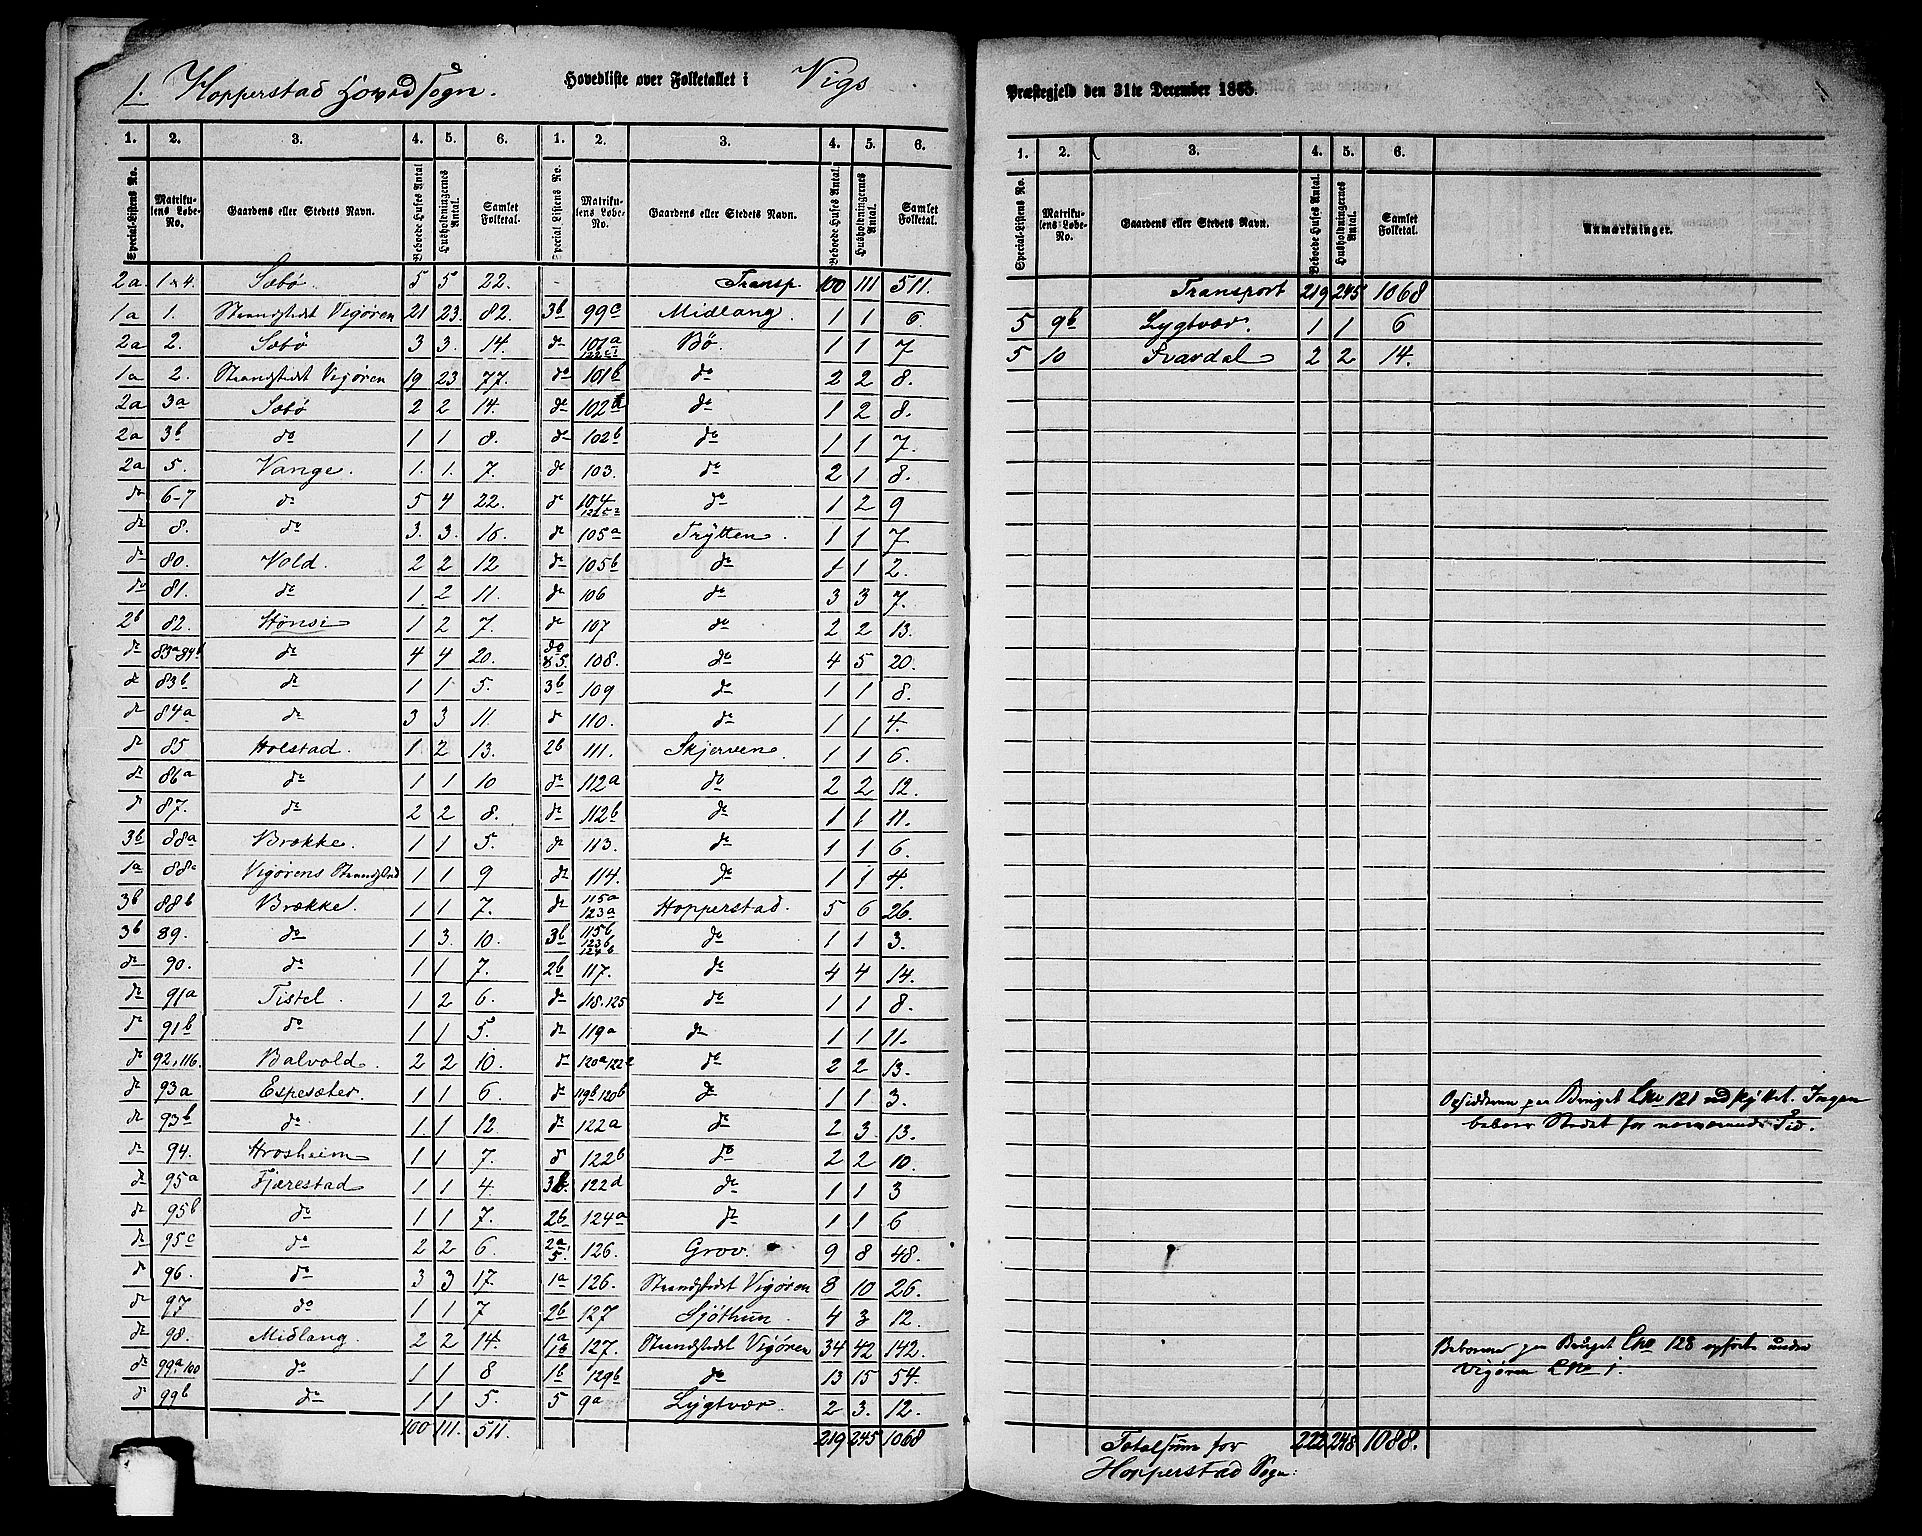 1. Hopperstad Hovedsogn. Hovedliste over Folketallet i Vigs Præstegjeld den 31te December 1865.
1. 2. 3. 4. 5. 6. 1. 2. 3. 4. 5. 6.
Special-Listens No. Matrikulens Løbe-No. Gaardens eller Stedets Navn. Beboede Huses Antal Husholdningernes Antal. Samlet Folketal. Special-Listens No. Matrikulens Løbe-No. Gaardens eller Stedets Navn. Beboede Huses Antal. Husholdningernes Antal. Samlet Folketal.
2a 1 & 4. Sæbø. 5 5 22. Transp. 100 111 511.
1a 1. Strandstedet Vigøren 21 23. 82. 3b 99c Midlang. 1 1 6.
2a 2. Sæbø 3 3. 14. do 101a 122c1 Bø. 1 1 7
1a 2. Strandstedet Vigøren 19 23 77. do 101b do 2 2 8.
2a 3a Sæbø 2 2 14. do 102a do 1 2 8.
2a 3b do 1 1 8. do 102b do 1 1 7.
2a 5. Vange. 1. 1. 7. do 103. do 2 1 8.
do 6-7 do 5 4 22. do 104 122c2 do 1 2 9
do 8. do 3. 3. 16. do 105a Trytten. 1 1 7
do 80. Vold. 2 2 12 do 105b do 1 1 2.
do 81. do 1. 2 11. do 106 do 3 3 7.
2b 82. Hønsi 1 2 7. do 107 do 2 2 13.
do 83a 84b do 4 4 20. do 85. 108. do 4 5 20.
do 83b do 1 1 5. 3b 109 do 1 1 8.
do 84a do 3 3 11. do 110. do 1 1 4.
do 85 Holstad. 1 2 13. 2b 111. Skjerven. 1 1 6.
do 86a do 1 1 10 do 112a do 2 2 12.
do 87. do 2 2 8. do 112b do 1 1 11.
3b 88a Brække. 1 1 5. do 113. do 1 1 6.
1a 88c Vigørens Strandsted 1 1 9 do 114. do 1 1 4.
3b 88b Brække. 1 1 7. do 115a 123a Hopperstad. 5 6 26.
3b 89. do 1 3. 10. 3b 115b 123b 124b do 1 1 3.
do 90. do 1 1 7. 2b 117. do 4 4 14.
do 91a Tistel. 1 2 6. do 118. 125 do 1 1 8.
do 91b do 1 1 5. do 119a do 1 1 11.
do 92, 116. Balvold. 2 2 10. do 120a 122c do 2 2 13.
do 93a Espesæter. 1 1 6 do 119b 120b do 1 1 3.
do 93b do 1 1 12. do 122a do 2 3. 13.
do 94. Hrosheim 1 1 7. do 122b do 2 2 10.
do 95a Fjærestad 1 1 4. 3b. 122d do 1 1 3
do 95b do 1 1 7. 2b 124a do 1 1 6
do 95c do 2 2 6. 2a 5. 126. Grov. 9 8 48.
do 96. do 3 3 17. 1a 126. Strandstedet Vigøren 8 10 26.
do 97 do 1 1 7 2b 127 Sjøthun. 4 3 12.
do 98. Midlang. 2 2 14. 1a 1b 127. Strandstedet Vigøren 34 42 142.
do 99a 100 do 1 1 8 1b 129b do 13 15 54.
do 99b do 1 1 5. 5 9a Lygtvær. 2 3. 12.
100 111. 511. 219 245 1068
1. 2. 3. 4. 5. 6.
Special-Listens No. Matrikulens Løbe-No. Gaardens eller Stedets Navn. Beboede Huses Antal. Husholdningernes Antal. Samlet Folketal. Anmærkninger.
Transport 219 245 1068
5 9b Lygtvær. 1 1 6
5 10 Svardal 2 2 14.
Opsidderen paa Bruget Lno 121 udflyttet. Ingen
beboer Stedet for nærværende Tid.
Beboerne paa Bruget Lno 128 opførte under
Vigøren Lno 1.
Totalsum for 222 248 1088.
Hopperstad Sogn: